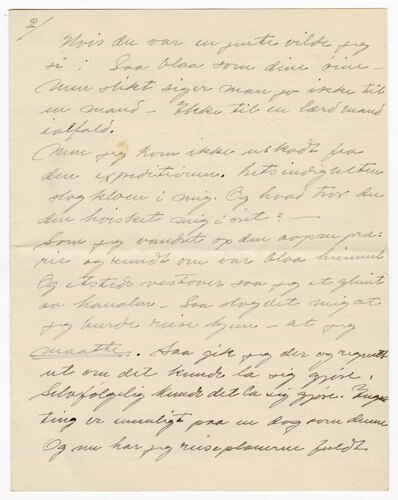 2/
Hvis du var en jente vilde jeg
si: Saa blaa som dine öine –
Men slikt siger man jo ikke til
en mand – Ikke til en lærd mand
ialfald.
Men jeg kom ikke uskadt fra
den expeditionen.
slog kloen i mig. Og hvad tror du
den hvisket mig i öret? –
Som jeg vandret op den aapne præ-
rie og rundt om var blaa himmel
Og etsteds vestover saa jeg et glimt
av kanalen – Saa slog det mig at
jeg burde reise hjem – at jeg
maatte. Saa gik jeg der og regnet
ut om det kunde la sig gjöre.
Selvfölgelig kunde det la sig gjöre. Ingen
ting er umuligt paa en dag som denne
Og nu har jeg reiseplanerne fuldt